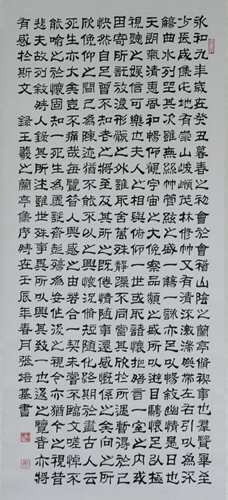 永和九年歲在癸丑暮春之初會於會稽山陰之蘭亭脩禊事也羣賢畢至
少長咸集此地有崇山峻嶺茂林脩竹又有清流激湍映帶左右引以為流
觴曲水列坐其次雖無絲竹管絃之盛一觴一詠亦足以暢敘幽情是日也
天朗氣清惠風和暢仰觀宇宙之大俯察品類之盛所以遊目騁懷足以極
視聽之娛信可樂也夫人之相與俯仰一世或取諸懷抱晤言一室之內或
因寄所託放浪形骸之外雖取舍萬殊靜躁不同當其欣於所遇暫得於己
快然自足不知老之將至及其所之既倦情隨事遷感慨係之矣向之所
欣俛仰之間已為陳迹猶不能不以之興懷況脩短隨化終期於盡古人云
死生亦大矣豈不痛哉每覽昔人興感之由若合一契未嘗不臨文嗟悼不
能喻之於懷固知一死生為虛誕齊彭殤為妄作後之視今亦猶今之視昔
悲夫故列敘時人錄其所述雖世殊事異所以興懷其致一也後之覽者亦將
有感於斯文 錄王羲之蘭亭集序時在壬辰年春月張培基書